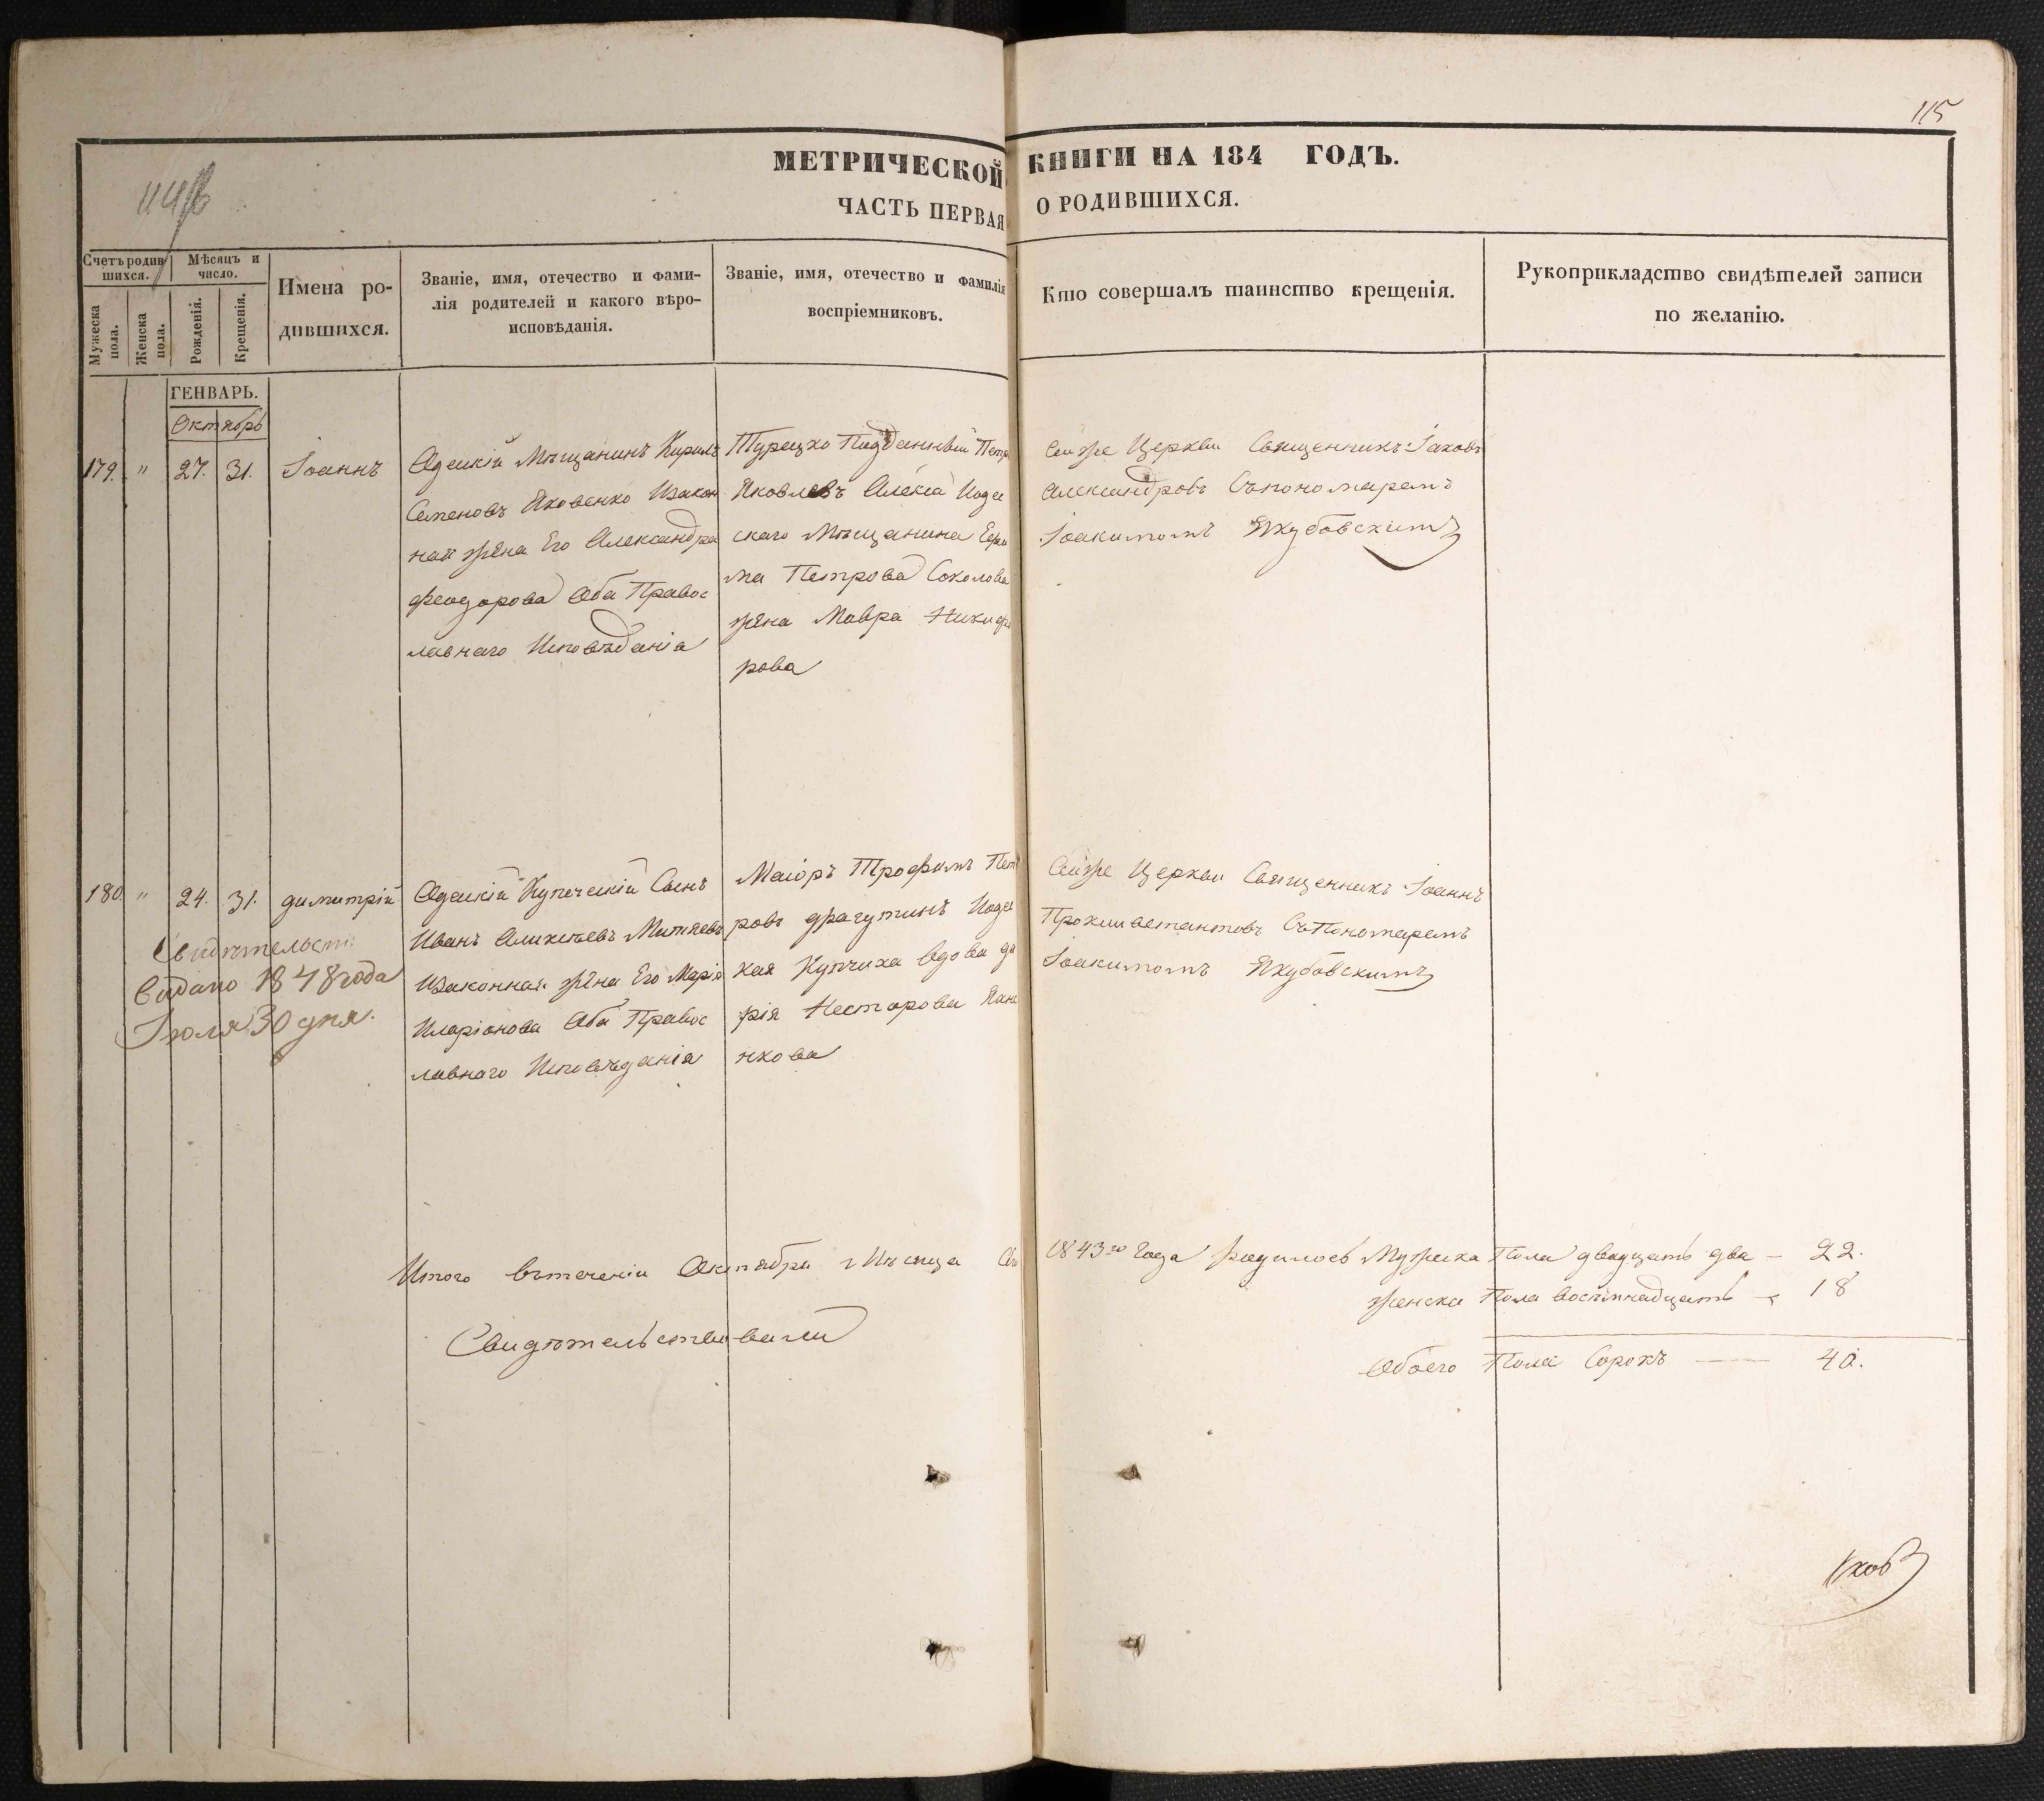 115
МЕТРИЧЕСКОЙ КНИГИ НА 184 ГОДЪ.
ЧАСТЬ ПЕРВАЯ О РОДИВШИХСЯ.
Счетъ родившихся.
Мужеска пола.
Женска пола.
Мѣсяцъ и число.
Рожденія.
Крещенія.
Имена ро-
дившихся.
Званіе, имя, отечество и фами-
лія родителей и какого вѣро-
исповѣданія.
Званіе, имя, отечество и фамилія
воспріемниковъ.
Кто совершалъ таинство крещенія.
Рукоприкладство свидѣтелей записи
по желанію.
ГЕНВАРЬ.
Октябрь
179. " 27. 31. Іоаннъ
Одескій Мѣщанинъ Кирилъ
Семеновъ Яковенко Изакон
ная жена Его Александра
Феодорова Оба Правос
лавнаго Исповѣданія
Турецко Подданный Петр
Яковлевъ Алекса Иоде
скаго Мѣщанина Ефи
ма Петрова Соколова
жена Мавра Никифо
рова
Сейже Церкви Священникъ Іаковъ
Александровъ Съпономаремъ
Іоакимомъ Якубовскимъ
180. " 24. 31. димитрій
Свидѣтельст
Видано 1848 года
Іюля 30 дня.
Одескій Купеческій Сынъ
Иванъ Аликсѣевъ Митяевъ
Изаконная жена Его Марія
Иларіонова Оба Правос
лавнаго Исповѣданія
Маіоръ Трофимъ Пет
ровъ Драгутинъ Иодес
кая Купчиха Вдова да
рія Несторова Яни
нкова
Сейже Церкви Священникъ Іоаннъ
Съпономаремъ
Іоакимомъ Якубовскимъ
Итого втеченіи Октября Мѣсяца Сего 1843го Года Родилось Мужска Пола двадцать два - 22.
женска Пола Восемнадцать - 18
Обоего Пола Сорокъ - 40.
Свидѣтельствовали